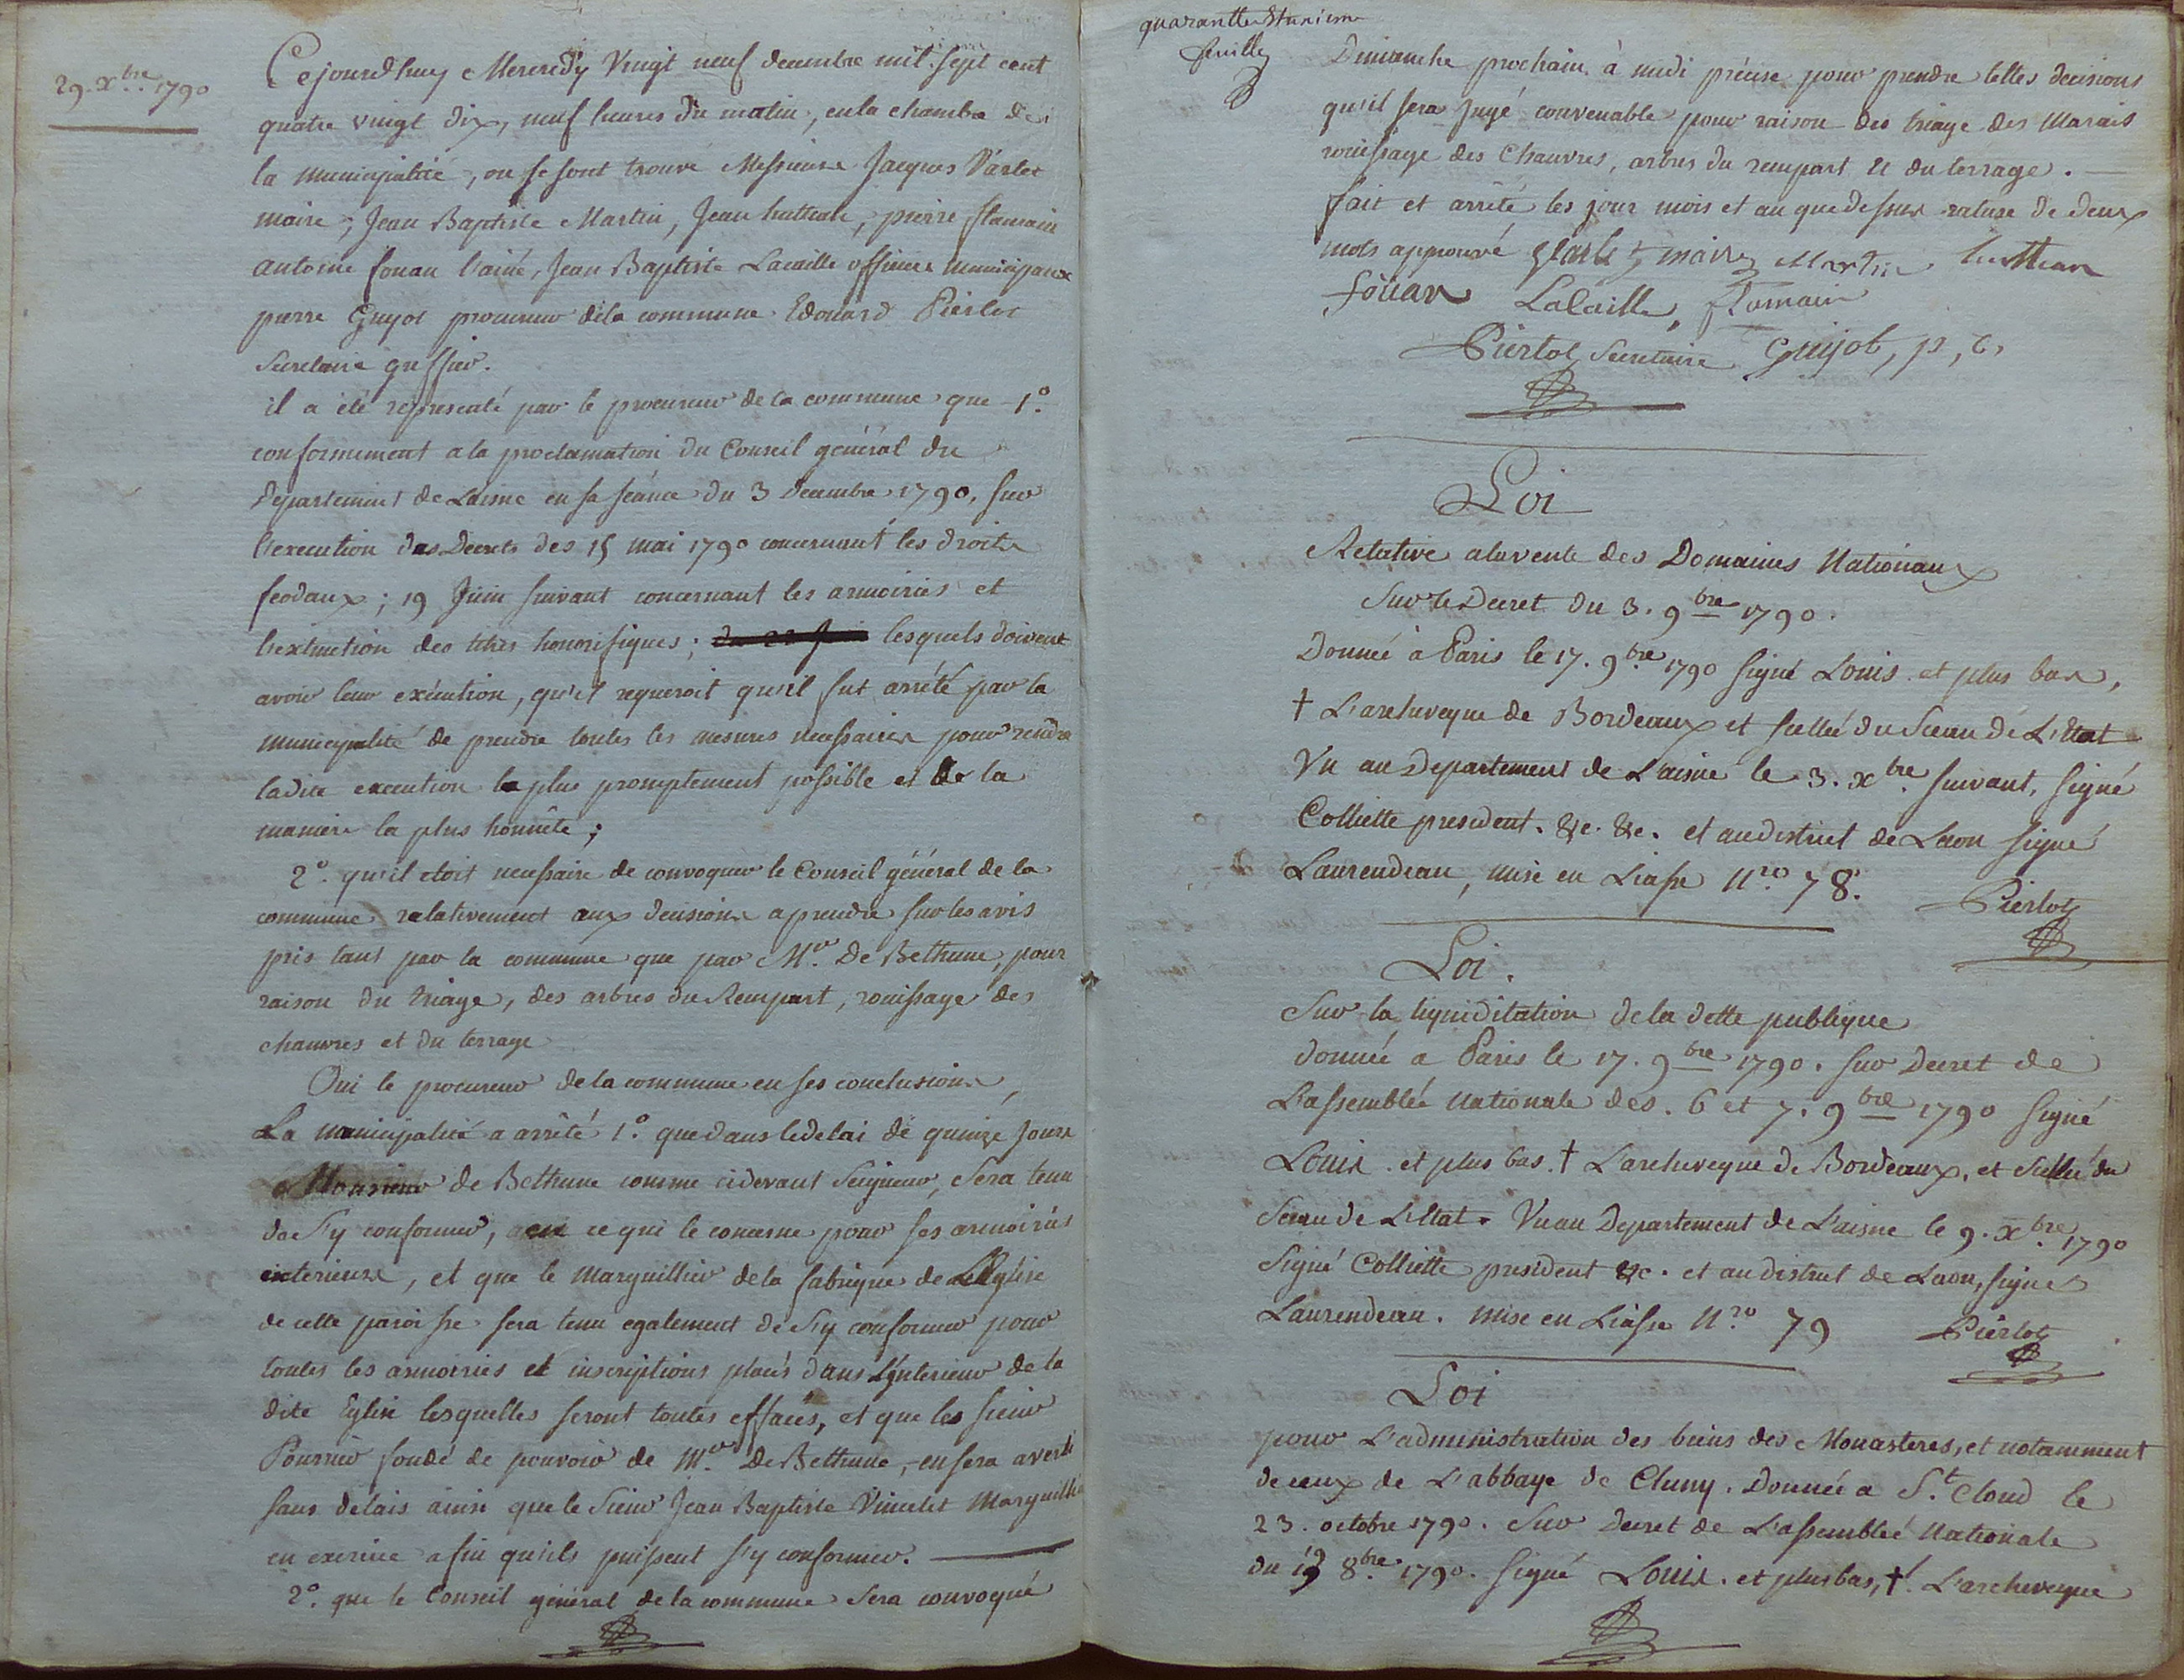 29. xbre 1790
Cejourdhuy Mercredy Vingt neuf decembre mil. sept cent
quatre vingt dix, neuf heures du matin, en la chambre de
la municipalité, ou se sont trouvé Messieurs Jacques
maire; Jean Baptiste Martin, Jean hutteau, pierre flamain
antoine fouan l'ainé, Jean Baptiste Lacaille officiers municipaux
pierre Guyot procureur de la commune Edouard Pierlot
Secretaire greffier.
il a été representé par le procureur de la commune que 1°.
conformement a la proclamation du Conseil général du
Departement de Laisne en sa séance du 3 decembre 1790, sur
l'execution des Decrets des 15 mai 1790 concernant les droits
feodaux; 19 Juin suivant concernant les armoiries et
l'extinction des titres honorifiques; lesquels doivent
avoir leur exécution, qu'il requeroit qu'il fut arrété par la
municipalité de prendre toutes les mesures necessaires pour rendre
ladite execution la plus promptement possible et de la
maniere la plus honnête;
2°. qu'il etoit necessaire de convoquer le Conseil général de la
commune relativement aux decisions a prendre sur les avis
pris tant par la commune que par Mr. De Bethune, pour
raison du triage, des arbres du Rempart, rouissage des
chauvres et du terrage
Oui le procureur de la commune en ses conclusions,
La municipalité a arrêté 1°. que dans le delai de quinze jours
Monsieur de Bethune comme cidevant Seigneur, Sera tenu
de S'y conformer, en ce qui le concerne pour ses armoiries
exterieurs, et que le Marguillier de la fabrique de L'Eglise
de cette paroisse sera tenu egalement de S'y conformer pour
toutes les armoiries et inscriptions placés dans L'interieur de la
dite Eglise lesquelles seront toutes effacés, et que les sieur
fondé de pouvoir de Mr. De Bethune, en sera averti
sans delais ainsi que le Sieur Jean Baptiste Marguillier
en exercice afin qu'ils puissent s'y conformer.
2°. que le Conseil général de la commune Sera convoqué
quarantte et uniem
feuille
Dimanche prochain à midi précise pour prendre telles decisions
qu'il sera jugé convenable pour raison des triage des Marais
rouissage des Chauvres, arbres du rempart et du terrage.
fait et arrêté les jour mois et an que dessus rature de deux
mots approuvé maire Martin hutteau
foüan LaCaille, flamain
Pierlot Secretaire Guijot, p, c,
Loi
Relative a la vente des Domaines Nationaux
Sur le Decret du 3. 9bre 1790.
Donnée à Paris le 17. 9bre 1790 signé Louis et plus bas,
† L'archeveque de Bordeaux et scellée du Sceau de L'Etat
Vu au Departement de L'aisne le 3. xbre. suivant, signé
Colliette president. &c. &c. et au district de Laon signé
Laurendeau, mise en Liasse Nro. 78. Pierlot
Loi.
Sur la liquiditation de la dette publique
donnée a Paris le 17. 9bre 1790. sur Decret de
L'assemblée Nationale des. 6 et 7. 9bre 1790 Signé
Louis. et plus bas. † L'archeveque de Bordeaux, et Scellée du
Sceau de L'Etat. Vu au Departement de L'aisne le 9. xbre. 1790
Signé Colliette president &c. et au district de Laon, signé
Laurendeau. mise en Liasse Nro. 79 Pierlot
Loi
pour L'administration des biens des Monasteres, et notamment
de ceux de L'abbaye de Cluny. Donnée a St. Cloud le
23. octobre 1790. Sur Decret de L'assemblée Nationale
du 19 8bre. 1790. Signé Louis. et plus bas, †. L'archeveque